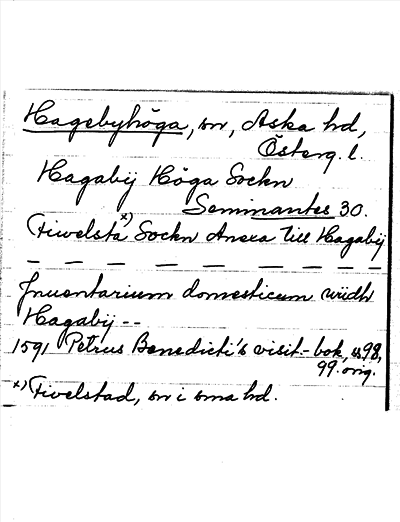 Hagebyhöga, sn, Aska hd,
Österg. l.
Hagabij Höga Sockn
Seminantes 30.
Fiwelsta x) Sockn Anexa till Hagabij
— — — — — — — — —
Jnuentarium domesticum widh
Hagabij --
1591 Petrus Benedicti's visit-bok, ss 98,
99. orig.
x) Fivelstad, sn i sma hd.